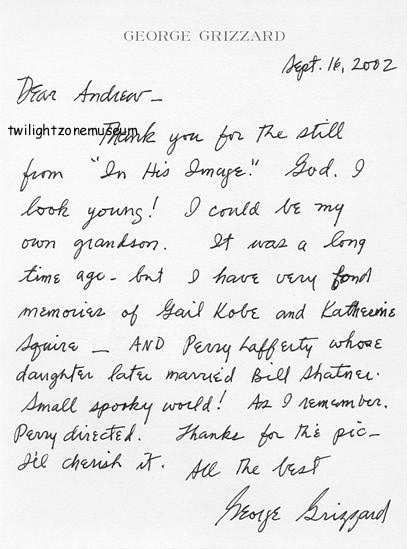 GEORGE GRIZZARD
Sept. 16, 2002
Dear Andrew—
twilightzonemuseum
Thank you for the still
from "In His Image." God, I
look young! I could be my
own grandson. It was a long
time ago - but I have very fond
memories of Gail Kobe and Katherine
Squire — AND Perry Lafferty whose
daughter later married Bill Shatner.
Small spooky world! As I remember,
Perry directed. Thanks for the pic—
I'll cherish it. All the best
George Grizzard